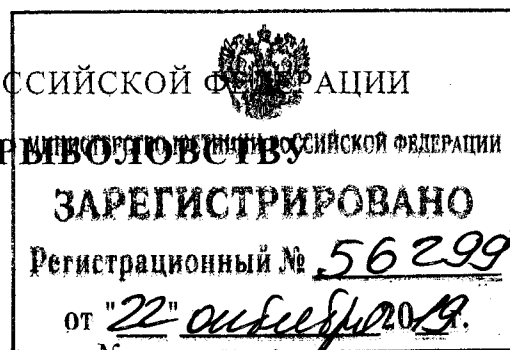 ССИЙСКОЙ ФЕДЕРАЦИИ
РЫБОЛОВСТВУ
МИНИСТЕРСТВО ЮСТИЦИИ РОССИЙСКОЙ ФЕДЕРАЦИИ
ЗАРЕГИСТРИРОВАНО
Регистрационный № 56299
от "22" октября 2019г.